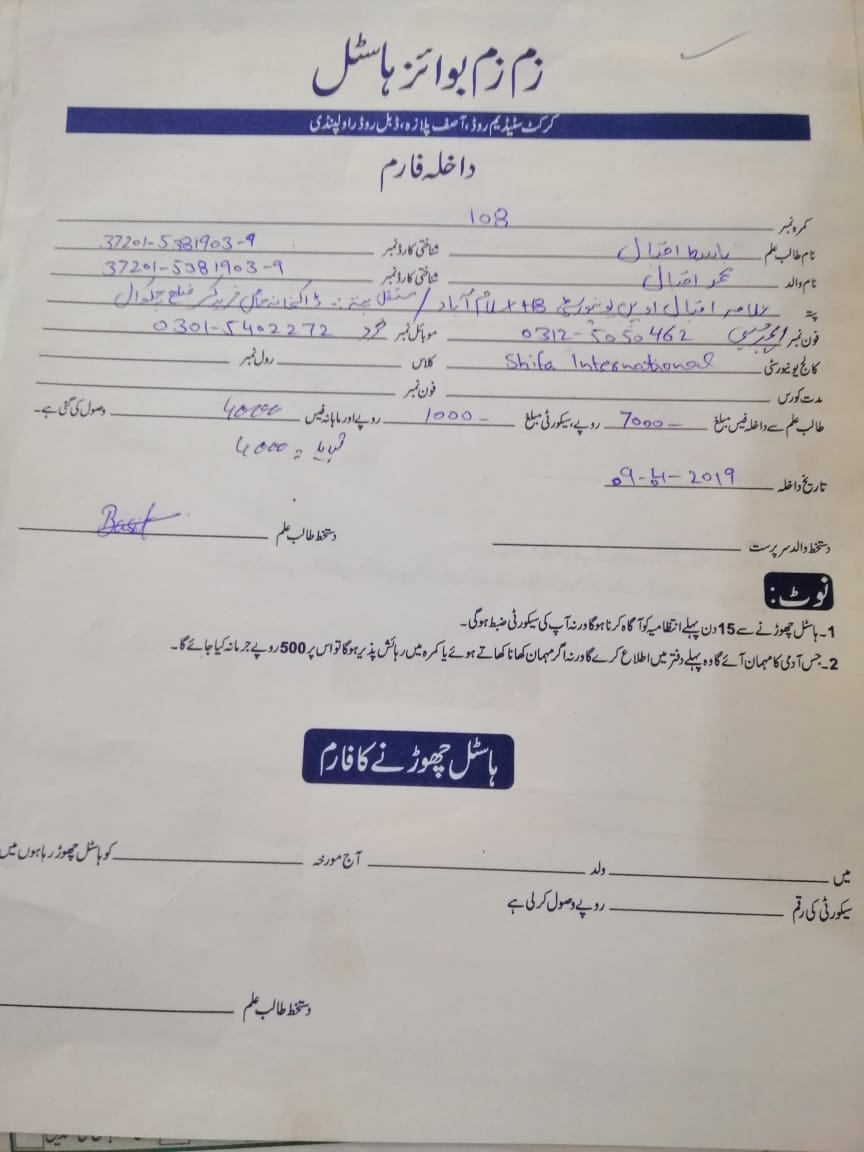 زم زم بوائز ہاسٹل
کرکٹ سٹیڈیم روڈ، آصف پلازہ، ڈبل روڈ راولپنڈی
داخلہ فارم
کمرہ نمبر 108
نام طالب علم باسط اقبال شناختی کارڈ نمبر 37201-5381903-9
نام والد محمد اقبال شناختی کارڈ نمبر 37201-5381903-9
پتہ علامہ اقبال اوپن یونیورسٹی H-8 اسلام آباد / مستقل پتہ: ڈاکخانہ ضلع چکوال
فون نمبر 0312-5050462 موبائل نمبر خود 0301-5402272
کالج یونیورسٹی Shifa International کلاس رول نمبر
مدت کورس فون نمبر
طالب علم سے داخلہ فیس مبلغ 7000 روپے، سیکورٹی مبلغ 1000 روپے اور ماہانہ فیس وصول کی گئی ہے۔
تاریخ داخلہ 09-04-2019
دستخط والد سرپرست دستخط طالب علم Basit
نوٹ:
1۔ ہاسٹل چھوڑنے سے 15 دن پہلے انتظامیہ کو آگاہ کرنا ہوگا ورنہ آپ کی سیکورٹی ضبط ہوگی۔
2۔ جس آدمی کا مہمان آئے گا وہ پہلے دفتر میں اطلاع کرے گا ورنہ اگر مہمان کھانا کھاتے ہوئے یا کمرہ میں رہائش پذیر ہوگا تو اس پر 500 روپے جرمانہ کیا جائے گا۔
ہاسٹل چھوڑنے کا فارم
میں ولد آج مورخہ کو ہاسٹل چھوڑ رہا ہوں میں
سیکورٹی کی رقم روپے وصول کر لی ہے
دستخط طالب علم